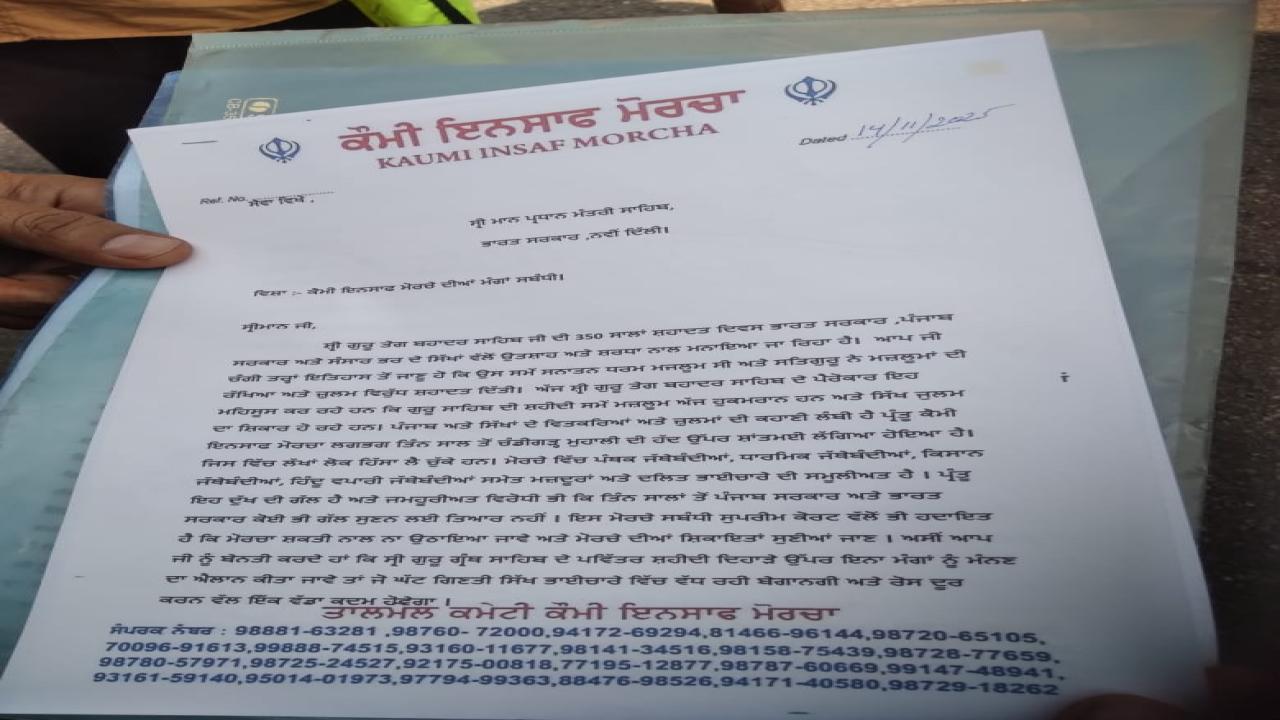 ਕੌਮੀ ਇਨਸਾਫ ਮੋਰਚਾ
KAUMI INSAF MORCHA
Dated 14/11/2025
Ref. No.
ਸੇਵਾ ਵਿਖੇ ,
ਸ੍ਰੀ ਮਾਨ ਪ੍ਰਧਾਨ ਮੰਤਰੀ ਸਾਹਿਬ,
ਭਾਰਤ ਸਰਕਾਰ ,ਨਵੀਂ ਦਿੱਲੀ।
ਵਿਸ਼ਾ :- ਕੌਮੀ ਇਨਸਾਫ ਮੋਰਚੇ ਦੀਆਂ ਮੰਗਾਂ ਸਬੰਧੀ।
ਸ੍ਰੀਮਾਨ ਜੀ,
ਸ੍ਰੀ ਗੁਰੂ ਤੇਗ ਬਹਾਦਰ ਸਾਹਿਬ ਜੀ ਦੀ 350 ਸਾਲਾਂ ਸ਼ਹਾਦਤ ਦਿਵਸ ਭਾਰਤ ਸਰਕਾਰ ,ਪੰਜਾਬ
ਸਰਕਾਰ ਅਤੇ ਸੰਸਾਰ ਭਰ ਦੇ ਸਿੱਖਾਂ ਵੱਲੋਂ ਉਤਸ਼ਾਹ ਅਤੇ ਸ਼ਰਧਾ ਨਾਲ ਮਨਾਇਆ ਜਾ ਰਿਹਾ ਹੈ। ਆਪ ਜੀ
ਚੰਗੀ ਤਰ੍ਹਾਂ ਇਤਿਹਾਸ ਤੋਂ ਜਾਣੂ ਹੋ ਕਿ ਉਸ ਸਮੇਂ ਸਨਾਤਨ ਧਰਮ ਮਜਲੂਮ ਸੀ ਅਤੇ ਸਤਿਗੁਰੂ ਨੇ ਮਜ਼ਲੂਮਾਂ ਦੀ
ਰੱਖਿਆ ਅਤੇ ਜ਼ੁਲਮ ਵਿਰੁੱਧ ਸ਼ਹਾਦਤ ਦਿੱਤੀ। ਅੱਜ ਸ੍ਰੀ ਗੁਰੂ ਤੇਗ ਬਹਾਦਰ ਸਾਹਿਬ ਦੇ ਪੈਰੋਕਾਰ ਇਹ
ਮਹਿਸੂਸ ਕਰ ਰਹੇ ਹਨ ਕਿ ਗੁਰੂ ਸਾਹਿਬ ਦੀ ਸ਼ਹੀਦੀ ਸਮੇਂ ਮਜ਼ਲੂਮ ਅੱਜ ਹੁਕਮਰਾਨ ਹਨ ਅਤੇ ਸਿੱਖ ਜ਼ੁਲਮ
ਦਾ ਸ਼ਿਕਾਰ ਹੋ ਰਹੇ ਹਨ। ਪੰਜਾਬ ਅਤੇ ਸਿੱਖਾਂ ਦੇ ਵਿਤਕਰਿਆਂ ਅਤੇ ਜ਼ੁਲਮਾਂ ਦੀ ਕਹਾਣੀ ਲੰਬੀ ਹੈ ਪ੍ਰੰਤੂ ਕੌਮੀ
ਇਨਸਾਫ ਮੋਰਚਾ ਲਗਭਗ ਤਿੰਨ ਸਾਲ ਤੋਂ ਚੰਡੀਗੜ੍ਹ ਮੁਹਾਲੀ ਦੀ ਹੱਦ ਉੱਪਰ ਸ਼ਾਂਤਮਈ ਲੱਗਿਆ ਹੋਇਆ ਹੈ।
ਜਿਸ ਵਿੱਚ ਲੱਖਾਂ ਲੋਕ ਹਿੱਸਾ ਲੈ ਚੁੱਕੇ ਹਨ। ਮੋਰਚੇ ਵਿੱਚ ਪੰਥਕ ਜੱਥੇਬੰਦੀਆਂ, ਧਾਰਮਿਕ ਜੱਥੇਬੰਦੀਆਂ, ਕਿਸਾਨ
ਜੱਥੇਬੰਦੀਆਂ, ਹਿੰਦੂ ਵਪਾਰੀ ਜੱਥੇਬੰਦੀਆਂ ਸਮੇਤ ਮਜ਼ਦੂਰਾਂ ਅਤੇ ਦਲਿਤ ਭਾਈਚਾਰੇ ਦੀ ਸਮੂਲੀਅਤ ਹੈ । ਪ੍ਰੰਤੂ
ਇਹ ਦੁੱਖ ਦੀ ਗੱਲ ਹੈ ਅਤੇ ਜਮਹੂਰੀਅਤ ਵਿਰੋਧੀ ਭੀ ਕਿ ਤਿੰਨ ਸਾਲਾਂ ਤੋਂ ਪੰਜਾਬ ਸਰਕਾਰ ਅਤੇ ਭਾਰਤ
ਸਰਕਾਰ ਕੋਈ ਭੀ ਗੱਲ ਸੁਣਨ ਲਈ ਤਿਆਰ ਨਹੀਂ । ਇਸ ਮੋਰਚੇ ਸਬੰਧੀ ਸੁਪਰੀਮ ਕੋਰਟ ਵੱਲੋਂ ਭੀ ਹਦਾਇਤ
ਹੈ ਕਿ ਮੋਰਚਾ ਸ਼ਕਤੀ ਨਾਲ ਨਾ ਉਠਾਇਆ ਜਾਵੇ ਅਤੇ ਮੋਰਚੇ ਦੀਆਂ ਸ਼ਿਕਾਇਤਾਂ ਸੁਣੀਆਂ ਜਾਣ । ਅਸੀਂ ਆਪ
ਜੀ ਨੂੰ ਬੇਨਤੀ ਕਰਦੇ ਹਾਂ ਕਿ ਸ੍ਰੀ ਗੁਰੂ ਗ੍ਰੰਥ ਸਾਹਿਬ ਦੇ ਪਵਿੱਤਰ ਸ਼ਹੀਦੀ ਦਿਹਾੜੇ ਉੱਪਰ ਇਨਾ ਮੰਗਾਂ ਨੂੰ ਮੰਨਣ
ਦਾ ਐਲਾਨ ਕੀਤਾ ਜਾਵੇ ਤਾਂ ਜੋ ਘੱਟ ਗਿਣਤੀ ਸਿੱਖ ਭਾਈਚਾਰੇ ਵਿੱਚ ਵੱਧ ਰਹੀ ਬੇਗਾਨਗੀ ਅਤੇ ਰੋਸ ਦੂਰ
ਕਰਨ ਵੱਲ ਇੱਕ ਵੱਡਾ ਕਦਮ ਹੋਵੇਗਾ ।
ਤਾਲਮੇਲ ਕਮੇਟੀ ਕੌਮੀ ਇਨਸਾਫ ਮੋਰਚਾ
ਸੰਪਰਕ ਨੰਬਰ : 98881-63281 ,98760- 72000,94172-69294,81466-96144,98720-65105,
70096-91613,99888-74515,93160-11677,98141-34516,98158-75439,98728-77659,
98780-57971,98725-24527,92175-00818,77195-12877,98787-60669,99147-48941,
93161-59140,95014-01973,97794-99363,88476-98526,94171-40580,98729-18262